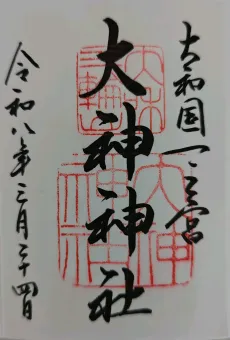 大和国一之宮
大神神社
令和八年三月二十四日